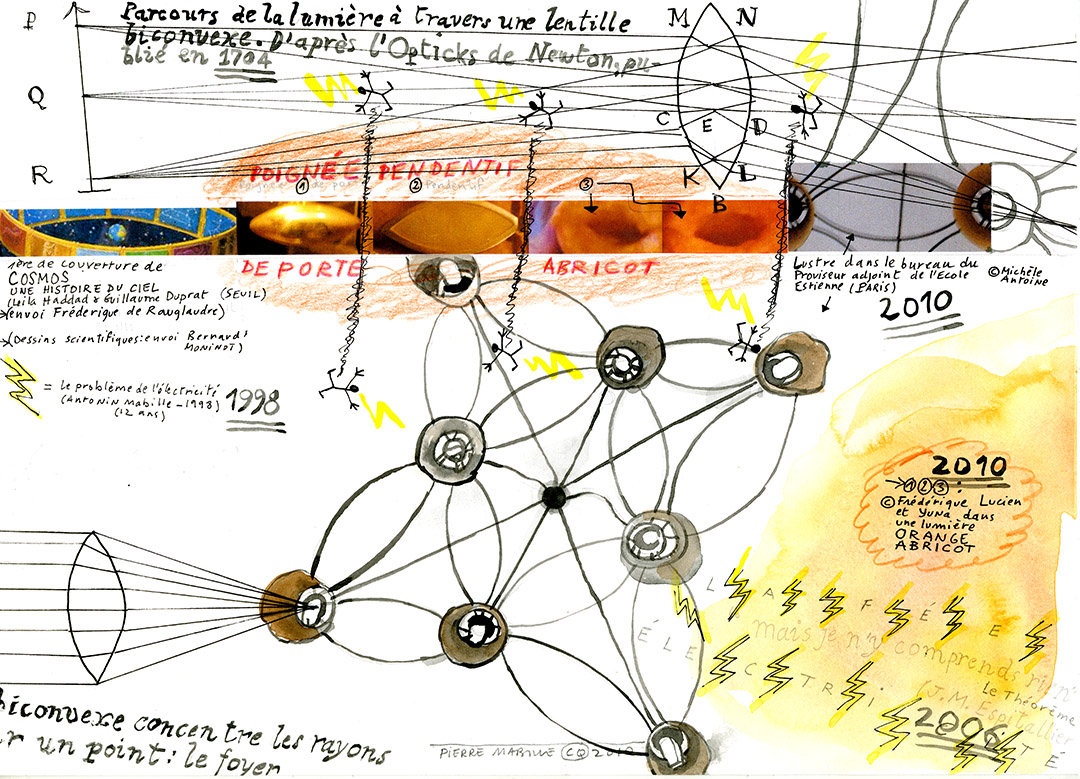 Parcours de la lumière à travers une lentille
biconvexe. D'après l'Opticks de Newton, pu-
blié en 1704
P
Q
R
M N
C E D
K L
B
POIGNÉE PENDENTIF
1 2 pendentif
3
DE PORTE ABRICOT
1ère de couverture de
COSMOS
UNE HISTOIRE DU CIEL
(Leïla Haddad & Guillaume Duprat (SEUIL)
(envoi Frédérique de Ravglaudre)
(Dessins scientifiques: envoi Bernard
MONINOT)
= Le problème de l'électricité
(Antonin Mabille - 1998)
(12 ans)
1998
Lustre dans le bureau du
Proviseur adjoint de l'Ecole
Estienne (PARIS)
2010
© Michèle
Antoine
2010
1 2 3 :
© Frédérique Lucien
et Yuna dans
une lumière
ORANGE
ABRICOT
LA FÉE
ÉLECTRiCiTÉ
mais je n'y comprends rien
Le Théorème
(J.M. Espitallier
2006
biconvexe concentre les rayons
un point: le foyer
PIERRE MABILLE CQ